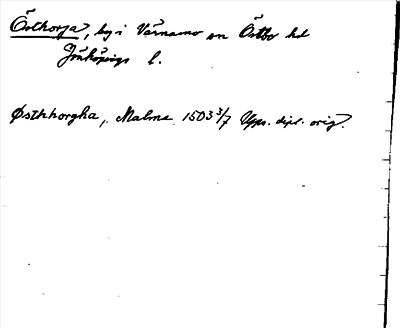 Östhorja, by i Värnamo sn Östbo hd
Jönköpings l.
Østhhorgha, Malma 1503 3/7 Upps. dipl. orig.